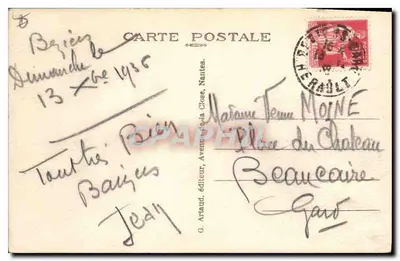 CARTE POSTALE
Beziers
Dimanche le
13 Xbre 1936
Tout très Bien
Baisers
Jean
G. Artaud, éditeur, Avenue de la Close, Nantes.
HERAULT
Madame Veuve MOINE
Place du Chateau
Beaucaire
Gard